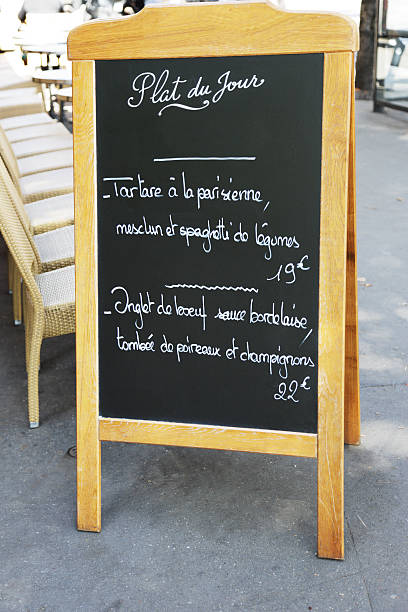 Plat du Jour
- Tartare à la parisienne,
mesclun et spaghetti de légumes
19€
- Onglet de boeuf sauce bordelaise,
tombée de poireaux et champignons
22€